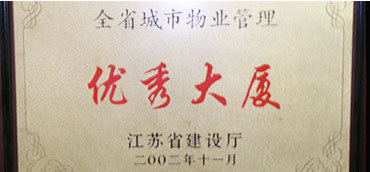 全省城市物业管理
优秀大厦
江苏省建设厅
二〇〇二年十一月